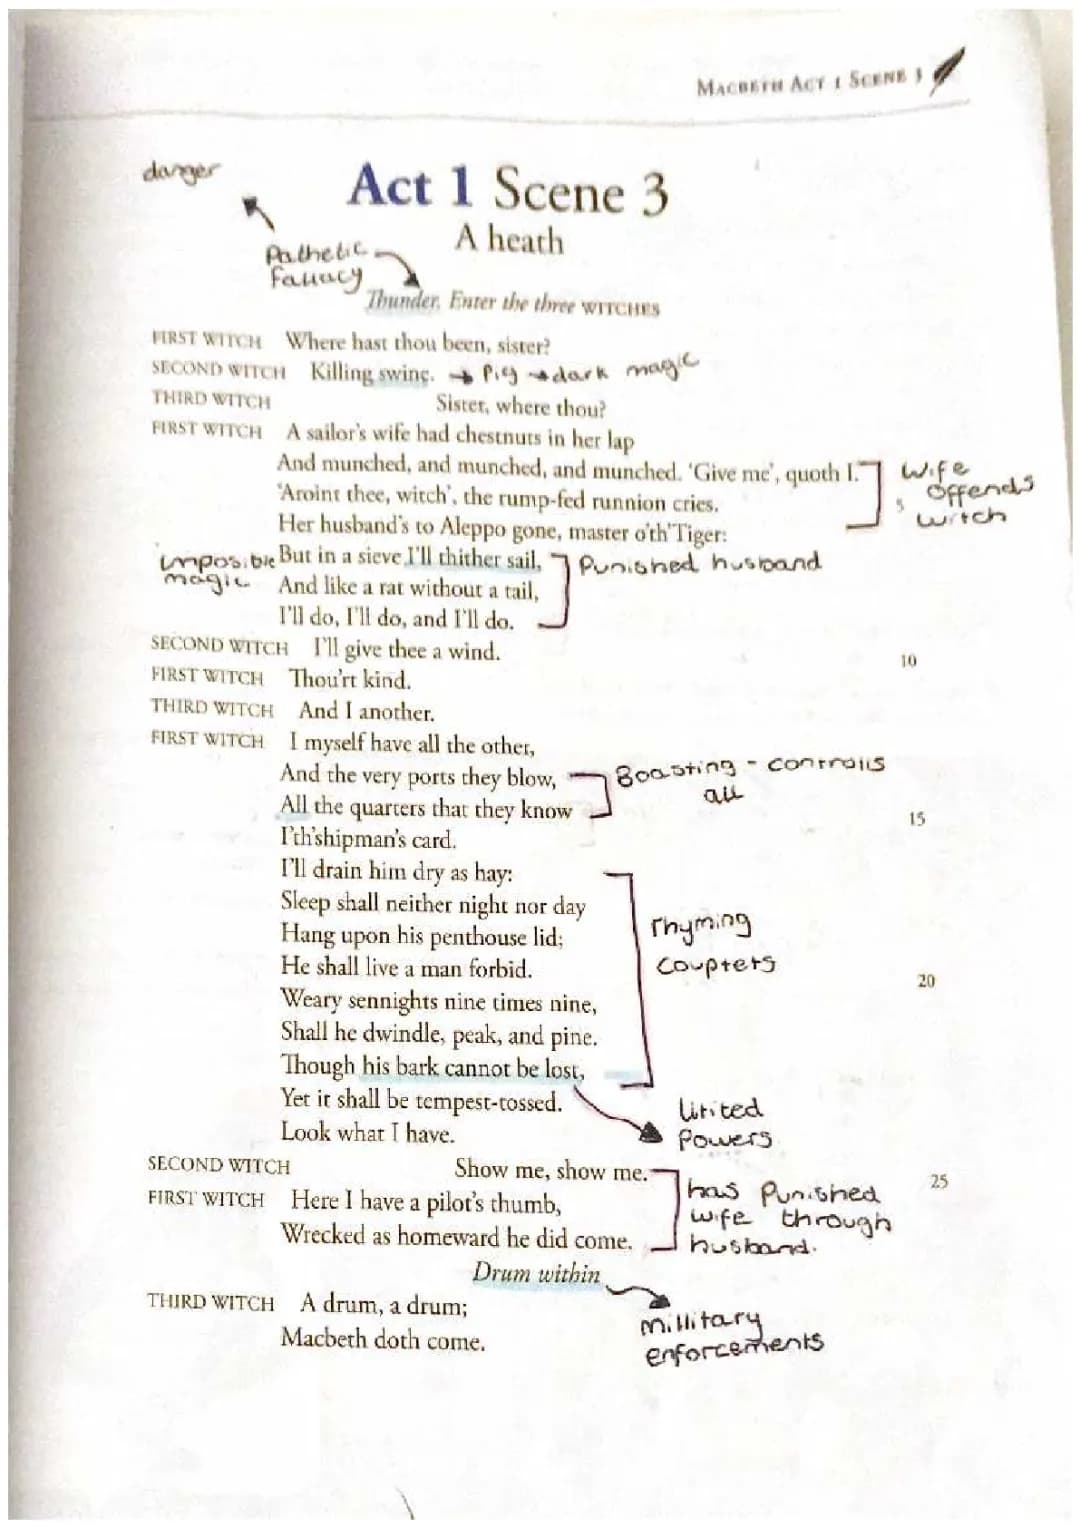 MACBETH ACT 1 SCENE 3
danger
Act 1 Scene 3
A heath
Pathetic
fallacy
Thunder. Enter the three WITCHES
FIRST WITCH Where hast thou been, sister?
SECOND WITCH Killing swine. → Pig → dark magic
THIRD WITCH Sister, where thou?
FIRST WITCH A sailor's wife had chestnuts in her lap
And munched, and munched, and munched. 'Give me', quoth I.
'Aroint thee, witch', the rump-fed runnion cries.
Her husband's to Aleppo gone, master o'th'Tiger:
wife
offends
5
witch
impossible
magic
But in a sieve I'll thither sail,
And like a rat without a tail,
I'll do, I'll do, and I'll do.
Punished husband
SECOND WITCH I'll give thee a wind.
10
FIRST WITCH Thou'rt kind.
THIRD WITCH And I another.
FIRST WITCH I myself have all the other,
And the very ports they blow,
All the quarters that they know
Boasting - controlls
all
15
I'th'shipman's card.
I'll drain him dry as hay:
Sleep shall neither night nor day
Hang upon his penthouse lid;
He shall live a man forbid.
rhyming
couplets
20
Weary sennights nine times nine,
Shall he dwindle, peak, and pine.
Though his bark cannot be lost,
Yet it shall be tempest-tossed.
Look what I have.
Powers
SECOND WITCH Show me, show me.
25
FIRST WITCH Here I have a pilot's thumb,
Wrecked as homeward he did come.
has Punished
wife through
husband.
Drum within
THIRD WITCH A drum, a drum;
Macbeth doth come.
Millitary
enforcements